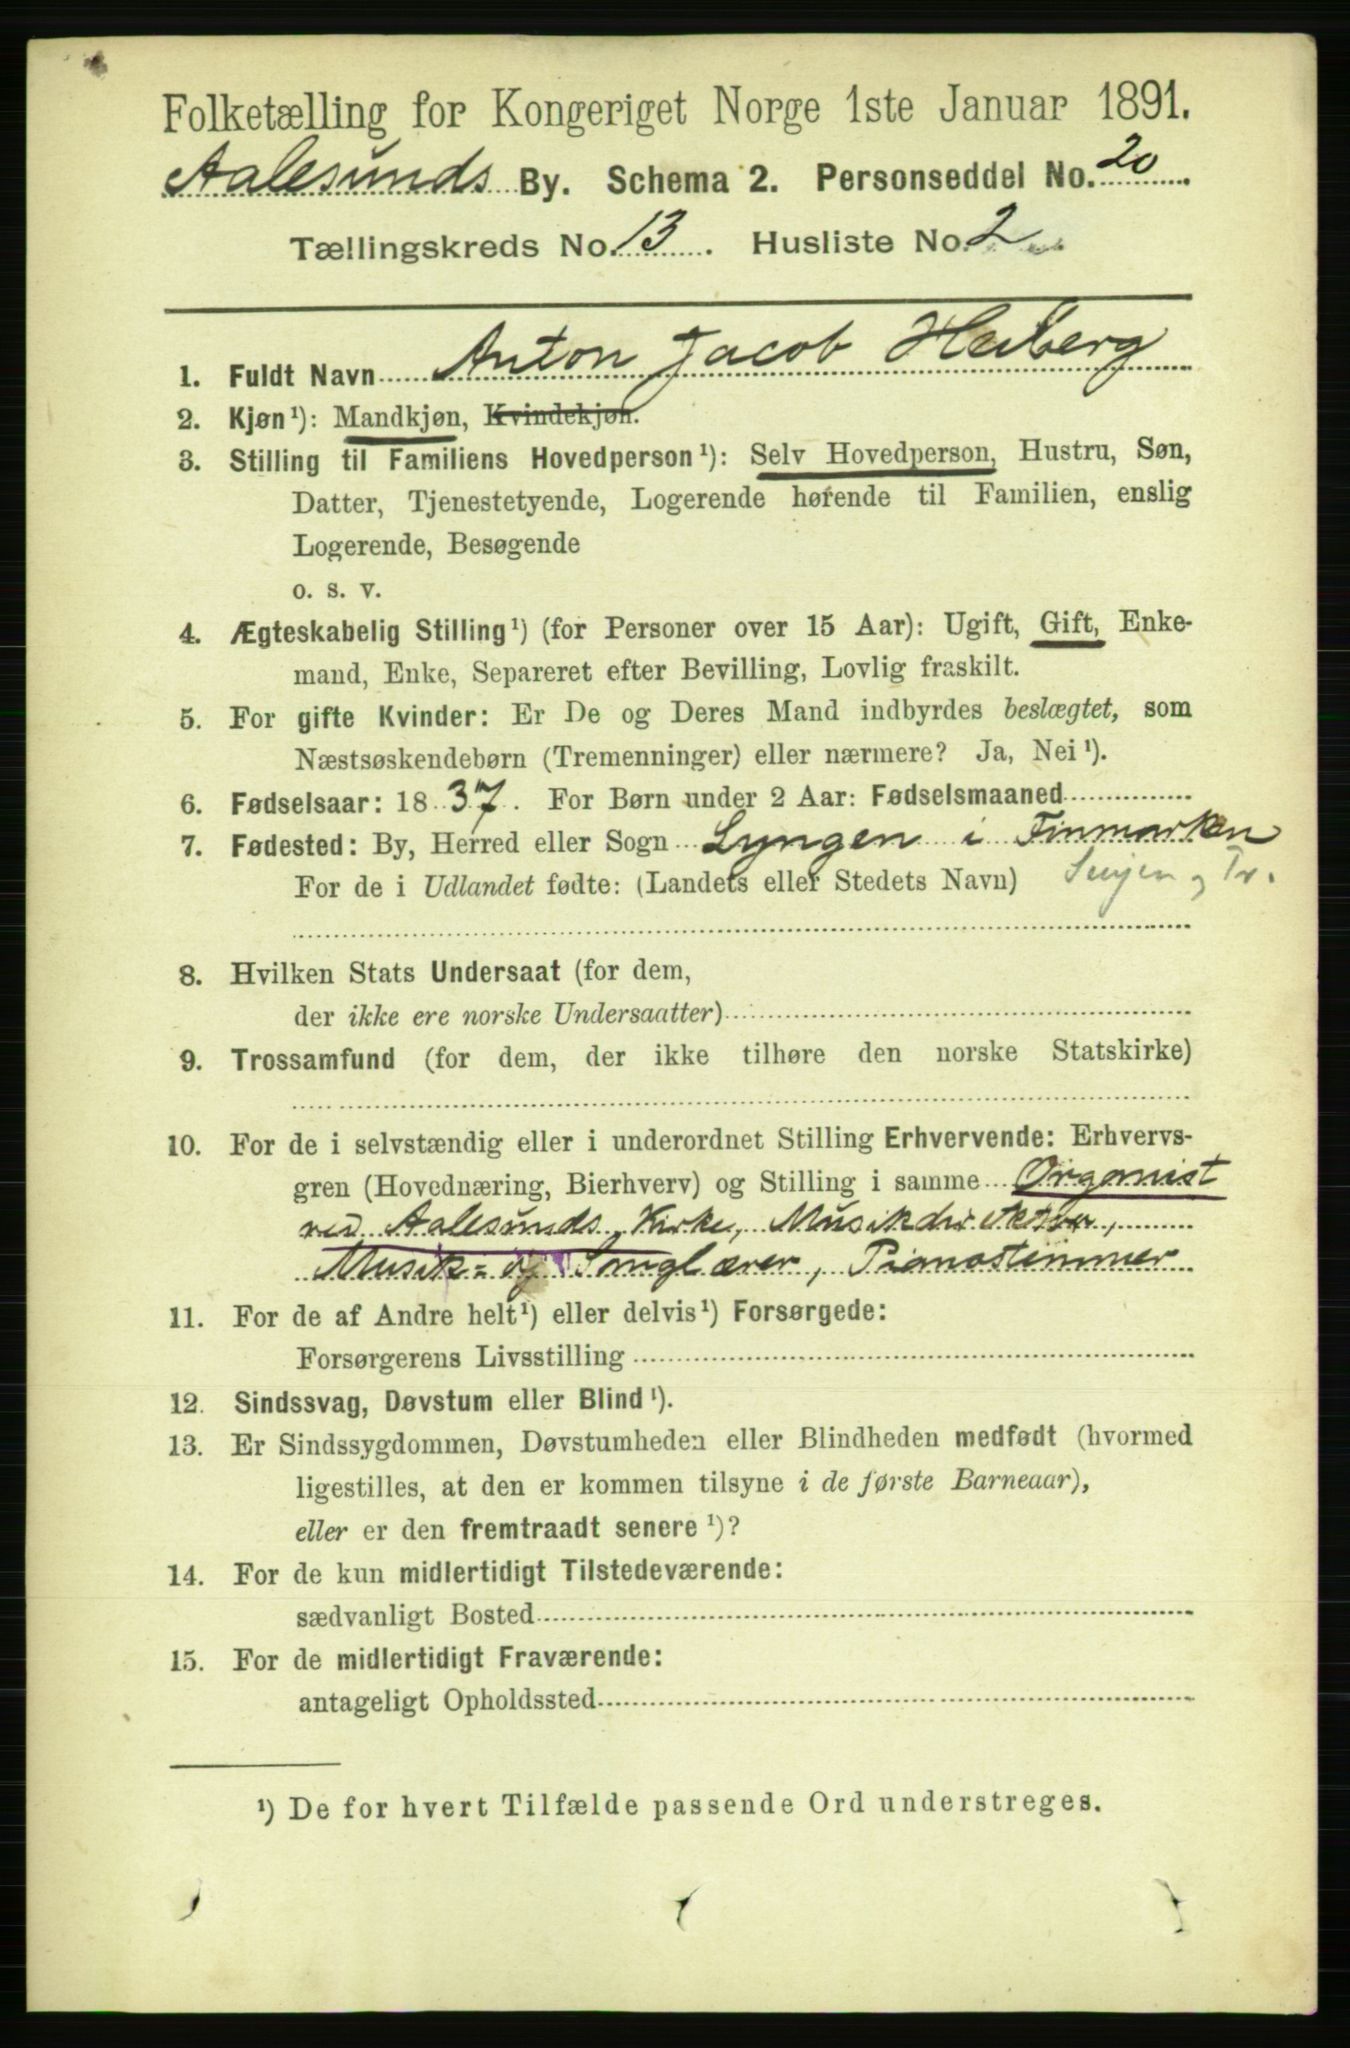 Folketælling for Kongeriget Norge 1ste Januar 1891.
Aalesunds By. Schema 2. Personseddel No. 20
Tællingskreds No. 13. Husliste No. 2
1. Fuldt Navn Anton Jacob Heiberg
2. Kjøn¹): Mandkjøn, Kvindekjøn.
3. Stilling til Familiens Hovedperson¹): Selv Hovedperson, Hustru, Søn,
Datter, Tjenestetyende, Logerende hørende til Familien, enslig
Logerende, Besøgende
o. s. v.
4. Ægteskabelig Stilling¹) (for Personer over 15 Aar): Ugift, Gift, Enke-
mand, Enke, Separeret efter Bevilling, Lovlig fraskilt.
5. For gifte Kvinder: Er De og Deres Mand indbyrdes beslægtet, som
Næstsøskendebørn (Tremenninger) eller nærmere? Ja, Nei¹).
6. Fødselsaar: 1837. For Børn under 2 Aar: Fødselsmaaned
7. Fødested: By, Herred eller Sogn Lyngen i Finmarken
For de i Udlandet fødte: (Landets eller Stedets Navn) Senjen og Tr.
8. Hvilken Stats Undersaat (for dem,
der ikke ere norske Undersaatter)
9. Trossamfund (for dem, der ikke tilhøre den norske Statskirke)
10. For de i selvstændig eller i underordnet Stilling Erhvervende: Erhvervs-
gren (Hovednæring, Bierhverv) og Stilling i samme Organist
ved Aalesunds Kirke, Musikdirektør,
Musik- og Sanglærer, Pianostemmer
11. For de af Andre helt¹) eller delvis¹) Forsørgede:
Forsørgerens Livsstilling
12. Sindssvag, Døvstum eller Blind¹).
13. Er Sindssygdommen, Døvstumheden eller Blindheden medfødt (hvormed
ligestilles, at den er kommen tilsyne i de første Barneaar),
eller er den fremtraadt senere¹)?
14. For de kun midlertidigt Tilstedeværende:
sædvanligt Bosted
15. For de midlertidigt Fraværende:
antageligt Opholdssted
¹) De for hvert Tilfælde passende Ord understreges.